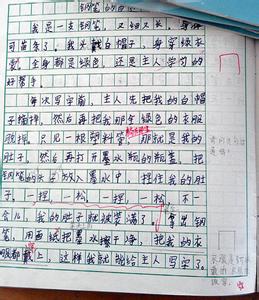 钢笔的自述
我是一支钢笔，又细又长，身体
可苗条了，我头戴白帽子，身穿绿衣
裳，全身都是绿色，还是主人学习的
好帮手。
每次写字前，主人先把我的白帽
子摘掉，然后再把我那个绿色的衣服
脱掉，只见一根塑料管，那就是我的
肚子，然后再打开墨水瓶的瓶盖，把
钢笔的头放入墨水中，捏住我的肚
子，一捏，一松，一捏，一松，不一
会儿，我的肚子就被装满了，拿出钢
笔，用面纸把墨水擦干净，把我的衣
服都戴上，这样我就能给主人写字了。